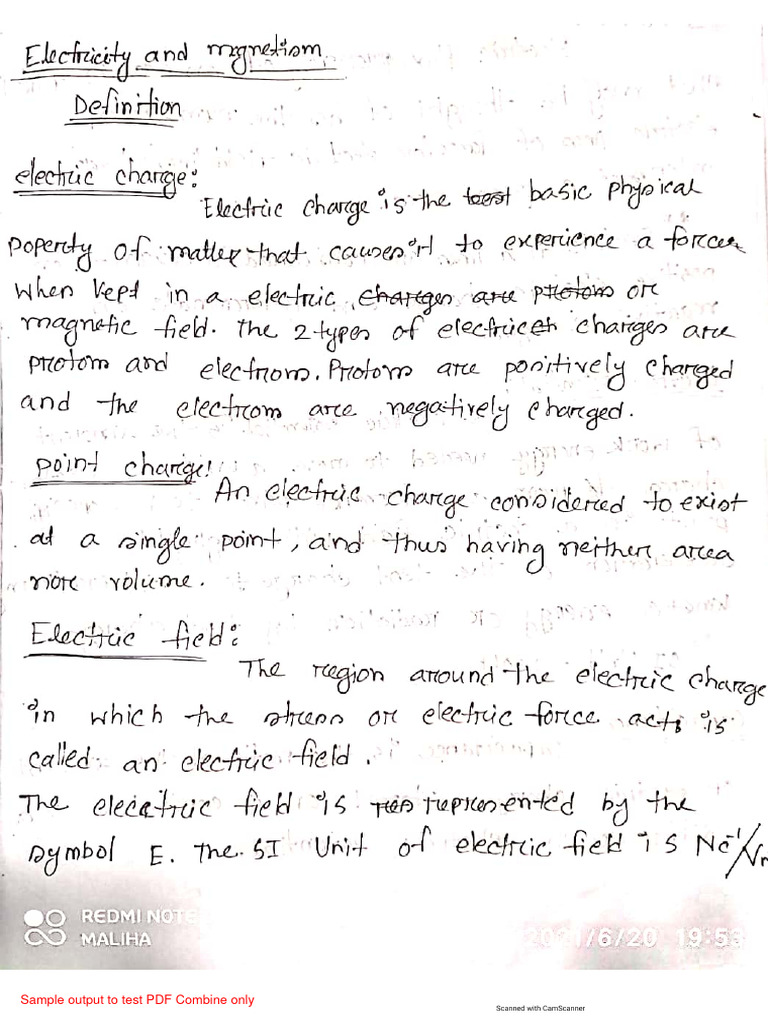 Electricity and magnetism
Definition
electric charge:
Electric charge is the basic physical
poperty of matter that causes it to experience a force
when kept in a electric charges are protons or
magnetic field. The 2 types of electric charges are
protom and electrons. Protons are positively charged
and the electrons are negatively charged.
point charge:
An electric charge considered to exist
at a single point, and thus having neither area
nor volume.
Electric field:
The region around the electric charge
in which the stress or electric force acts is
called an electric field.
The elecatric field is represented by the
symbol E. The SI Unit of electric field is NC⁻¹/
REDMI NOTE
MALIHA
2021/6/20 19:53
Sample output to test PDF Combine only
Scanned with CamScanner